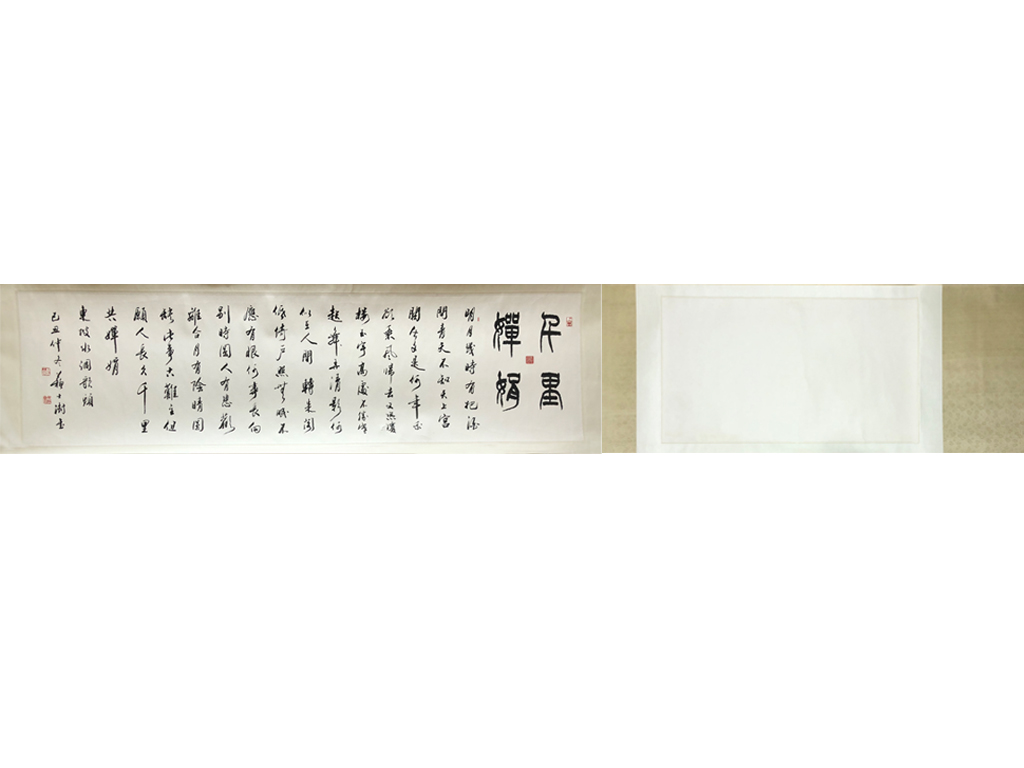 千里
嬋娟
明月幾時有把酒
問青天不知天上宮
闕今夕是何年我
欲乘風歸去又恐瓊
樓玉宇高處不勝寒
起舞弄清影何
似在人間轉朱閣
低綺戶照無眠不
應有恨何事長向
別時圓人有悲歡
離合月有陰晴圓
缺此事古難全但
願人長久千里
共嬋娟
東坡水調歌頭
己丑仲冬蘇士澍書